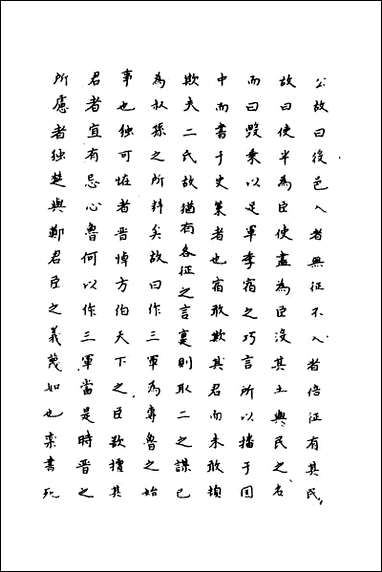 公故曰役邑入者無征不入者倍征有其民
故曰使半為臣使盡為臣沒其土與民之名
而曰毀乘以足軍季宿之巧言所以搪于国
中而書于史策者也宿敢欺其君而未敢頓
欺夫二氏故猶有各征之言裏則取二之謀已
為叔孫之所料矣故曰作三軍為專魯之始
事也独可恠者晋悼方伯天下之臣欲擅其
君者宜有忌心魯何以作三軍當是時晋之
所慮者独楚與鄭君臣之義蔑如也欒書死